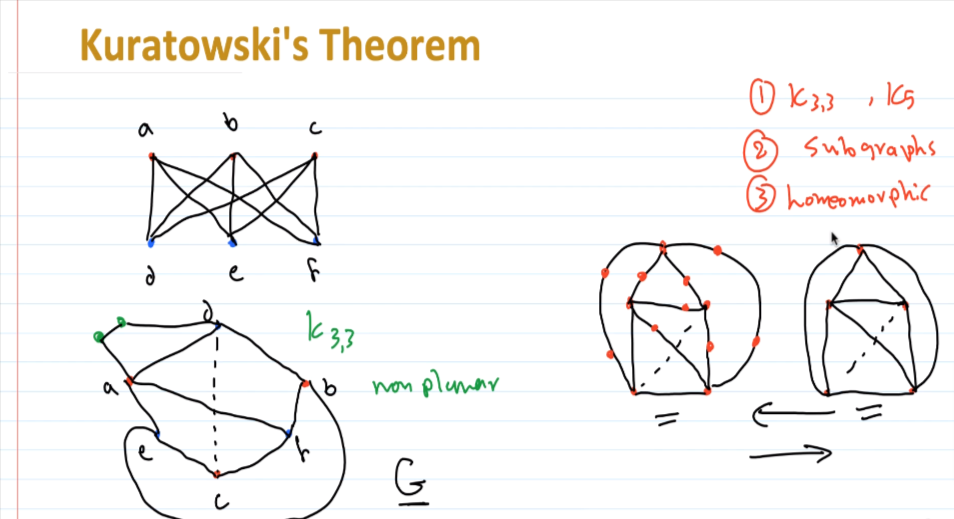 Kuratowski's Theorem
① K3,3 , K5
② Subgraphs
③ homeomorphic
a b c
d e f
d
K3,3
a b
nonplanar
e f
c
G
= =